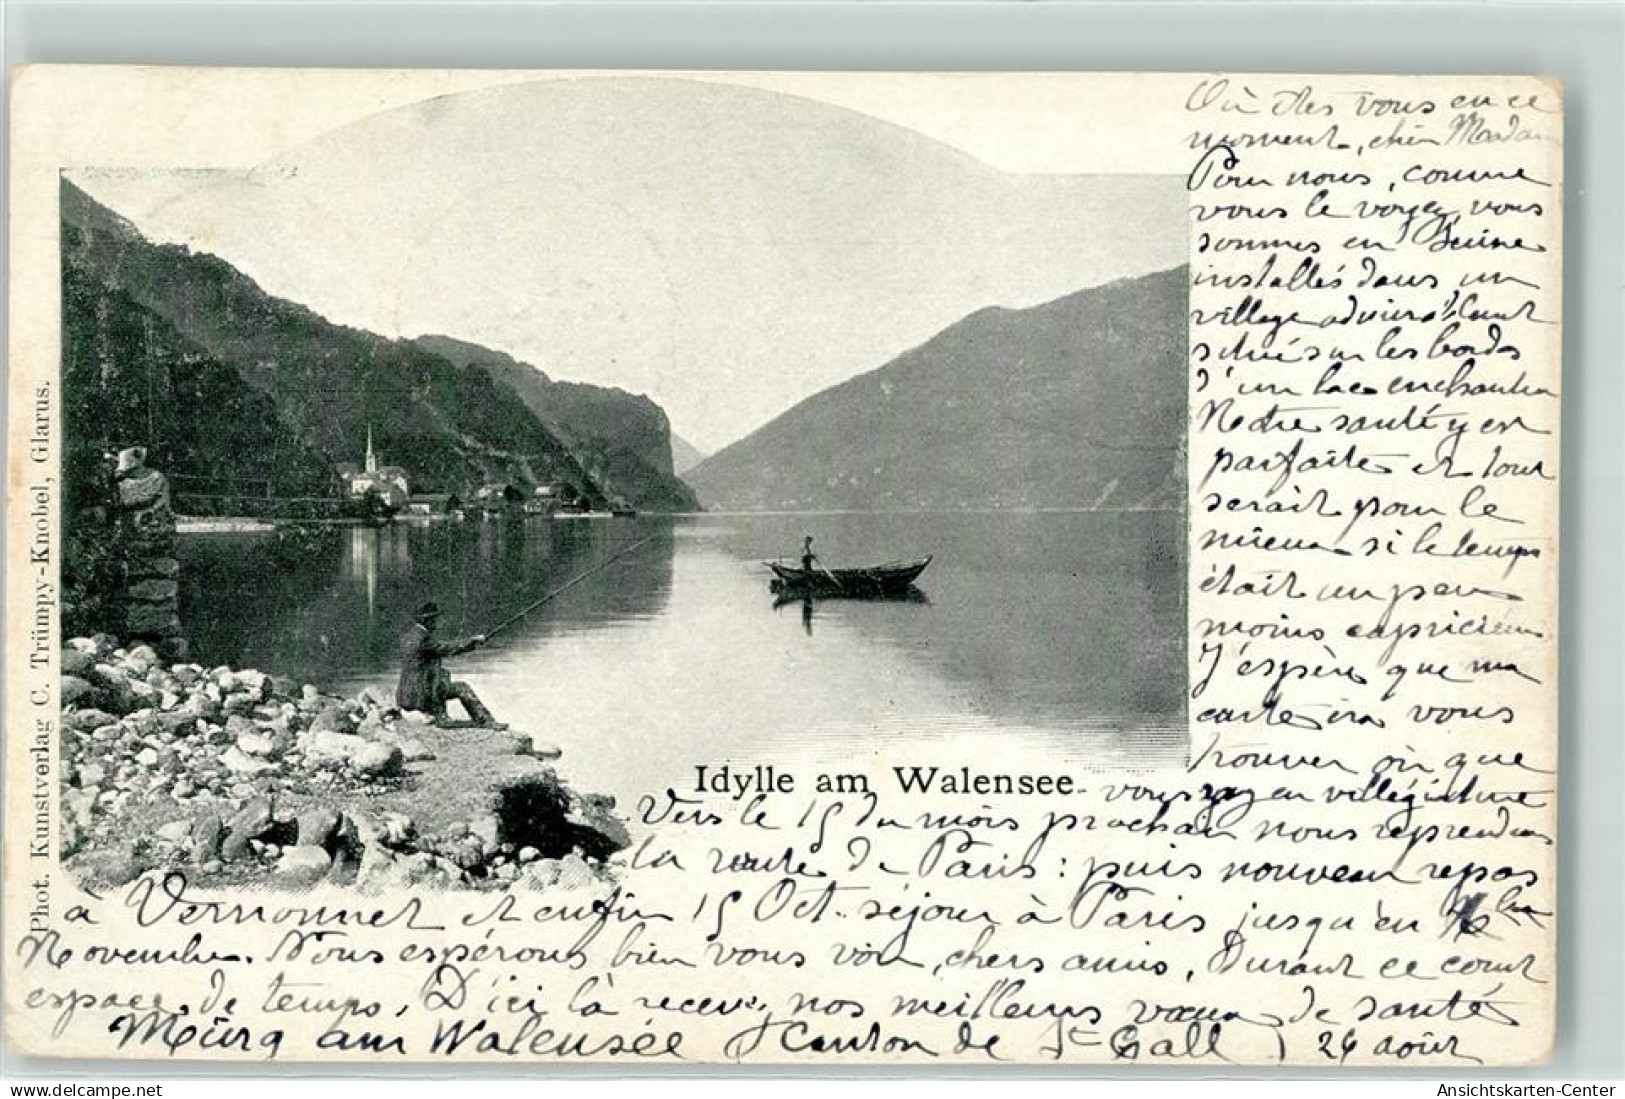 Où êtes vous en ce
moment, chère Madam
Pour nous, comme
vous le voyez, nous
sommes en Suisse
installés dans un
village admirablement
situé sur les bords
d'un lac enchanteur
Notre santé y est
parfaite et tout
serait pour le
mieux si le temps
était un peu
moins capricieux
J'espère que ma
carte ira vous
trouver où que
vous soyez en villégiature
Idylle am Walensee.
Vers le 15 du mois prochain nous reprendrons
la route de Paris : puis nouveau repos
à Vernonnet et enfin 15 Oct. séjour à Paris jusqu'en
Novembre. Nous espérons bien vous voir, chers amis, Durant ce court
espace de temps. D'ici là recevez nos meilleurs vœux de santé
Mürg am Walensee (Canton de St Gall) 26 août
Phot. Kunstverlag C. Trümpy-Knobel, Glarus.
www.delcampe.net
Ansichtskarten-Center